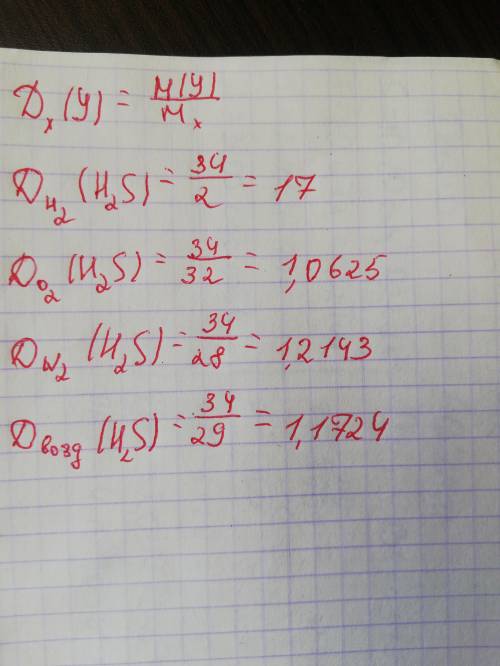 Dₓ(У) = М(У)/Мₓ
D_H₂ (H₂S) = 34/2 = 17
D_O₂ (H₂S) = 34/32 = 1,0625
D_N₂ (H₂S) = 34/28 = 1,2143
D_возд (H₂S) = 34/29 = 1,1724